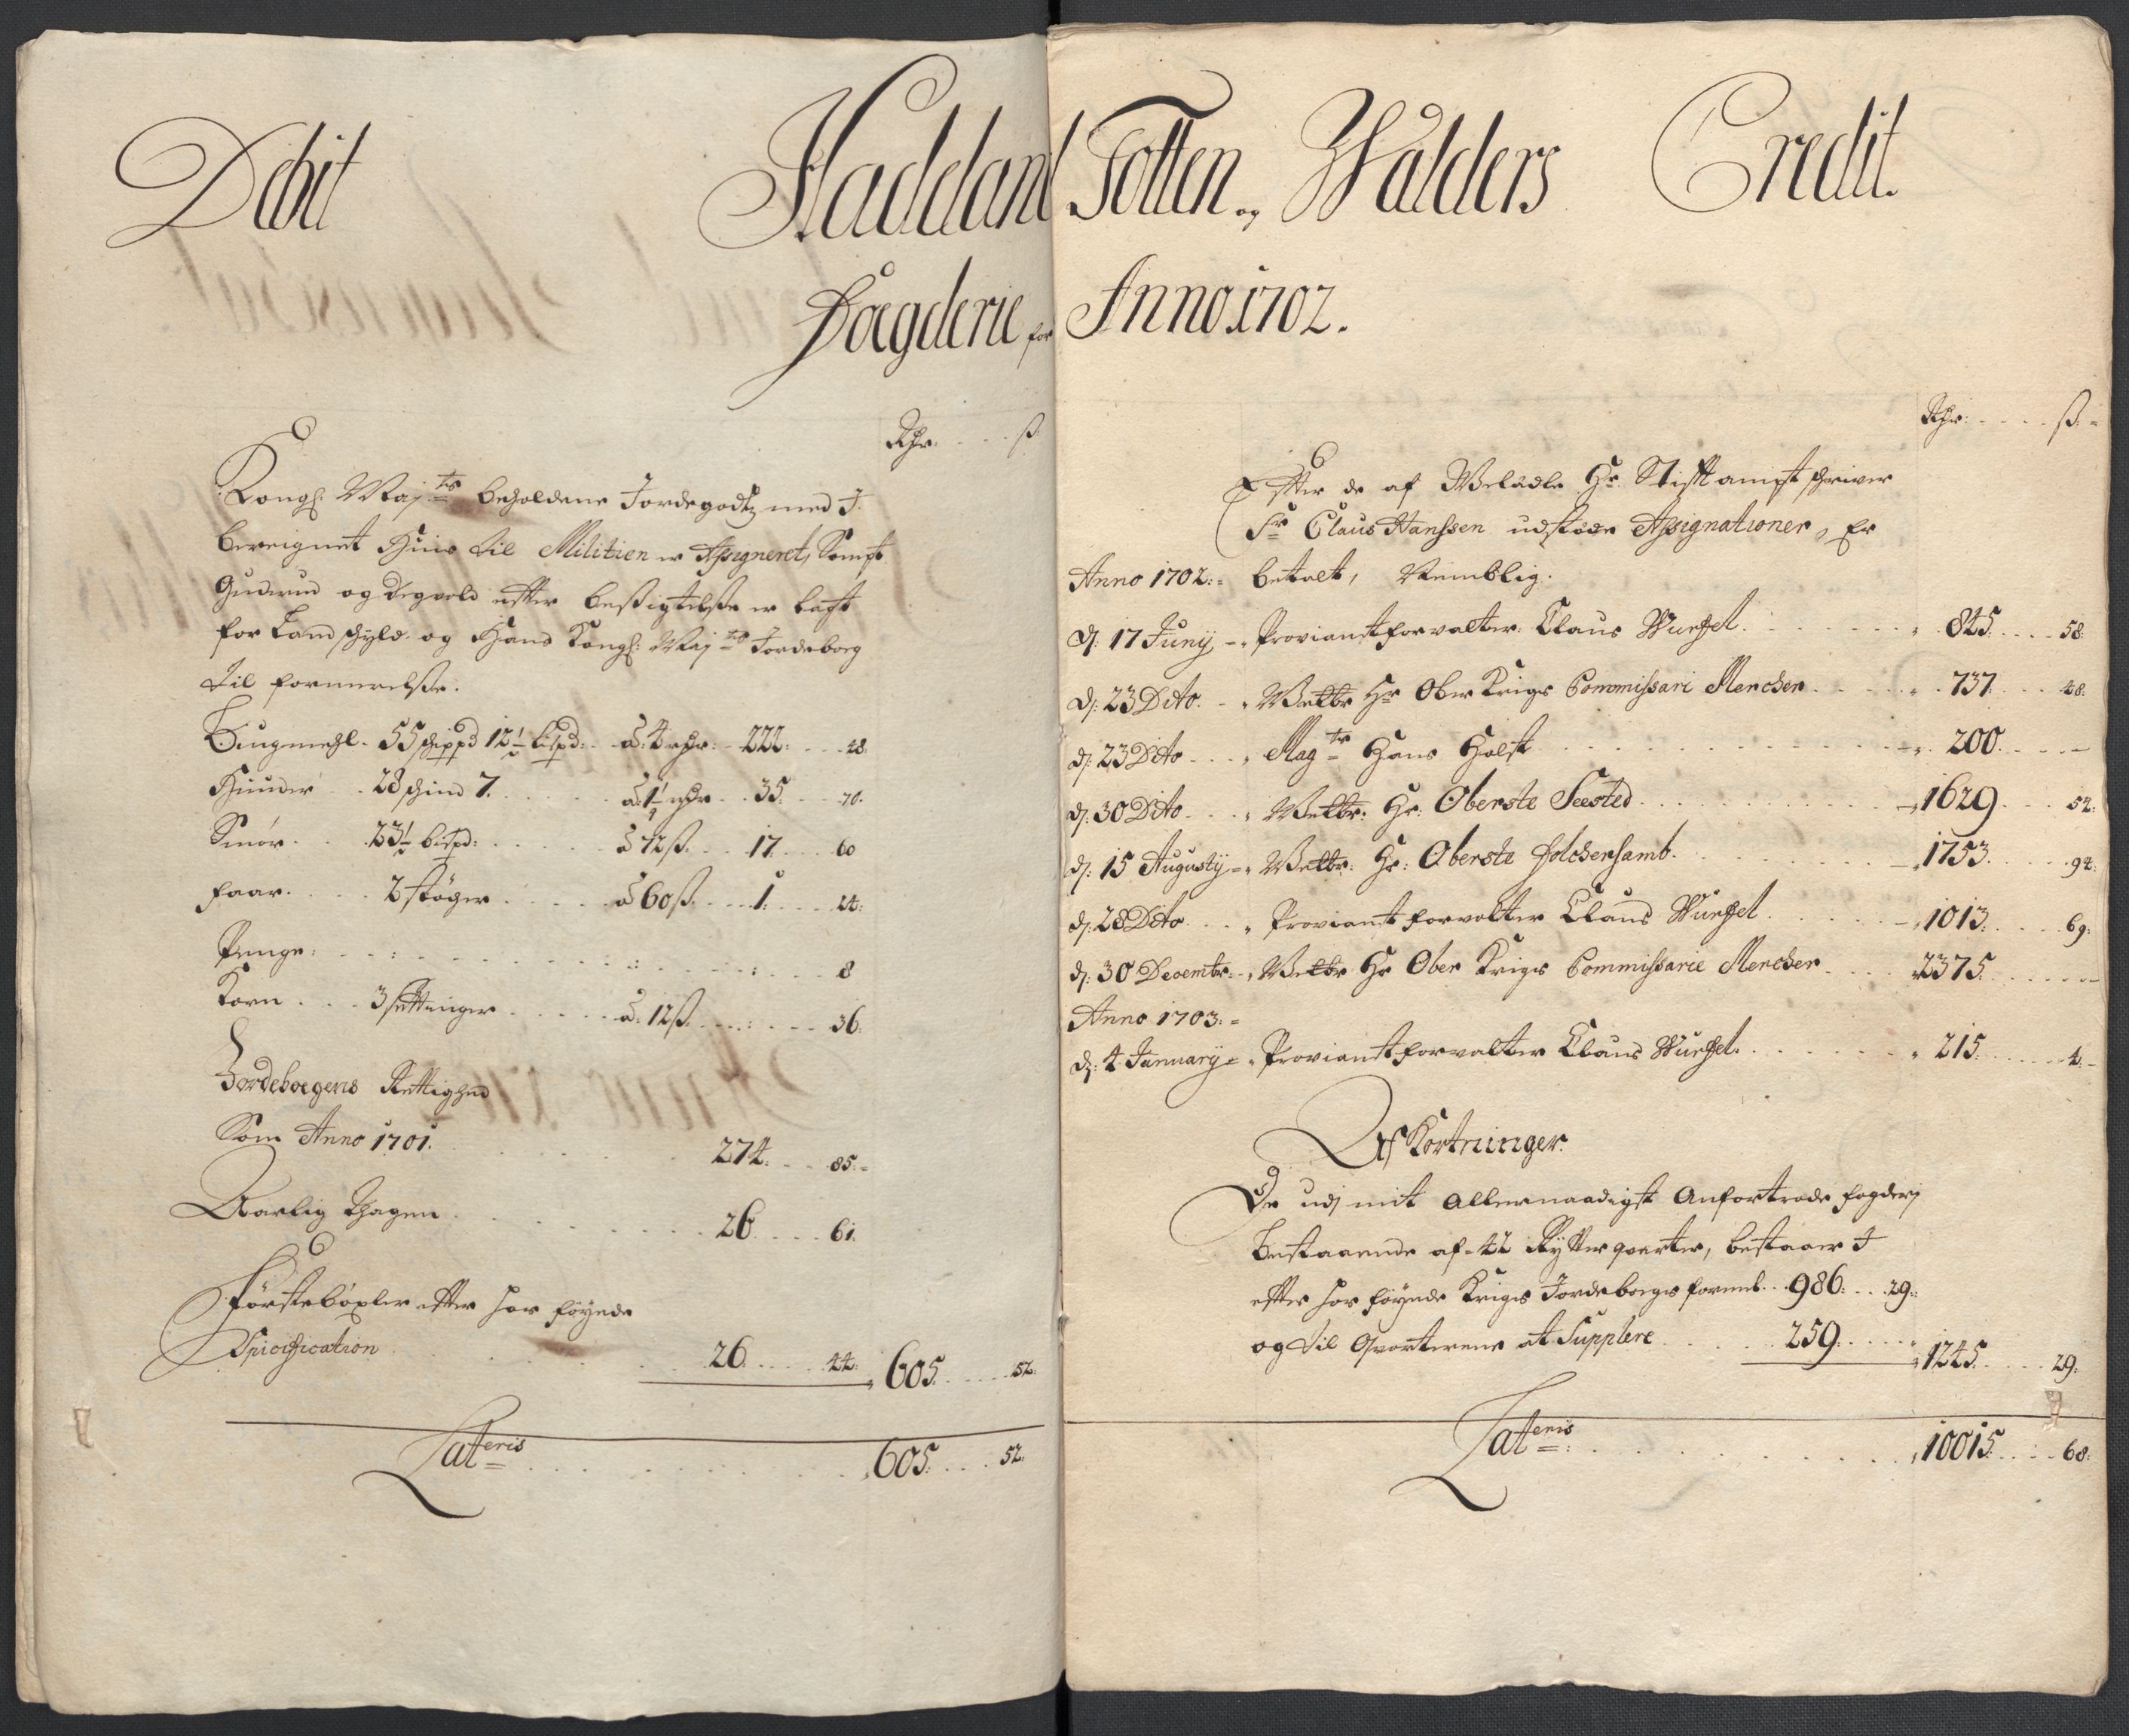 Debit Hadeland Totten og Walders Credit.
Voegderie for Anno 1702.
Rdr: ß
Kongl: Maj:ts beholdene Jordegodtz med J.
bereignet Huis til Militien er Assigneret, Sampt
og efter besigtelse er lagt
for Landschyld og Hans Kongl: Maj:ts Jordebog
til formerelse.
Tungmehl 55 schippd 12½ bispd: à 4 rdr: 222: 48:
Huuder 28 schind 7. à 1¼ rdr 35 70.
Smör 23½ bispd: à 72 ß 17 60
Faar 2 støcher à 60 ß 1: 24:
Penge: 8
Korn 3 settinger à 12 ß 36:
Jordeboegens Rettighed
Som Anno 1701. 274 85:
Aarlig Thagen 26 61.
Förstebøxler efter hos føyede
Specification 26 44: 605 52:
Lateris 605 52:
Rdr: ß
Efter de af Welædle Hr Stifftamptschriver
Sr Claus Hanssen udstæde Assignationer, Er
Anno 1702: betalt, Nemblig.
d: 17 Junij Proviantforvalter: Claus Wurtzel 845 58:
d: 23 Dito Welbr Hr Ober Krigs Commissari Mencken 737 48:
d: 23 Dito Mag:tr Hans Holst 200
d: 30 Dito Welbr: Hr: Oberste Seested 1629 52:
d: 15 Augustij Welbr: Hr: Oberste Folchersamb. 1753 94:
d: 28 Dito Proviantforvalter Claus Wurtzel 1013: 69:
d: 30 Decembr: Welbr Hr Ober Krigs Commissarie Mencken 2375
Anno 1703:
d: 4 January Proviantforvalter Claus Wurtzel 215 4
Af Kortninger.
De udj mit Allernaadigst Anfortrode fogderj
Bestaaende af 42 Rytterqvarter, bestaaer J
efter hos føyede Krigs Jordebogs formb. 986: 29:
og til Qvarterene at Supplere 259: 1245 29:
Lateris: 10015 68: